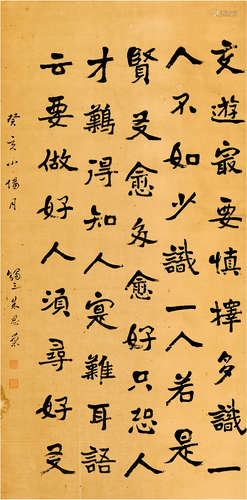 交遊寂要慎擇多識一
人不如少識一人若是
賢友愈多愈好只恐人
才鷄得知人寔難耳語
云要做好人須尋好友
癸亥小陽月
錫三朱恩